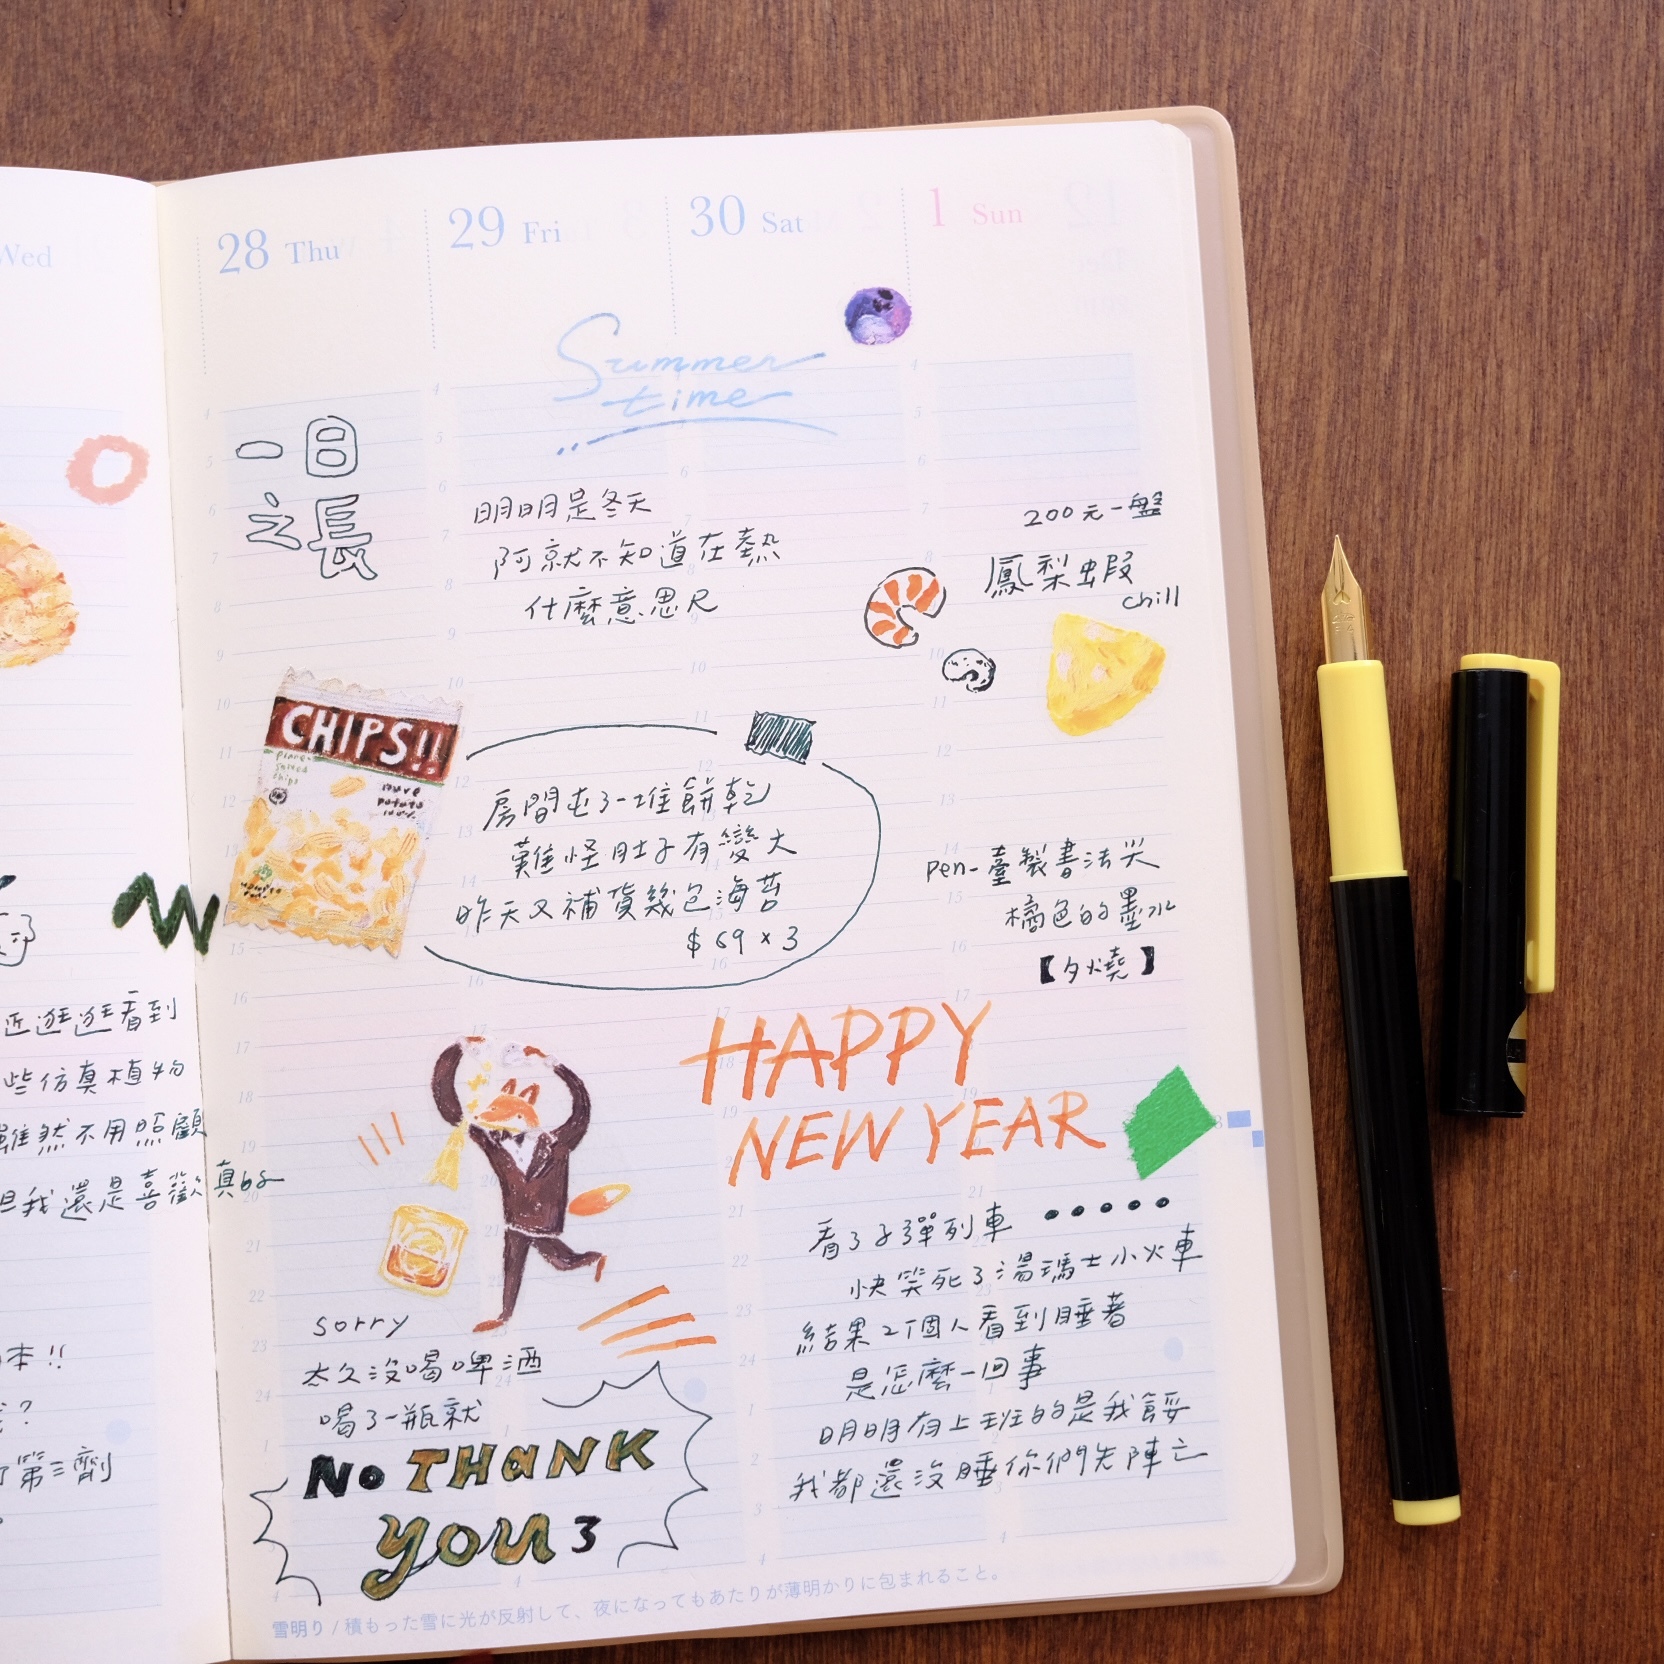 Wed
28 Thu
29 Fri
30 Sat
1 Sun
Summer
time
一日
之長
明明是冬天
阿就不知道在熱
什麼意思ㄕ
200元一盤
鳳梨蝦
chill
CHIPS!!
pure
potato
100%
房間屯了一堆餅乾
難怪肚子有變大
昨天又補貨幾包海苔
$69×3
pen-臺製書法尖
橘色的墨水
【夕燒】
近逛逛看到
些仿真植物
雖然不用照顧
但我還是喜歡真的
HAPPY
NEW YEAR
看了子彈列車 •••••
快笑死了湯瑪士小火車
結果2個人看到睡著
是怎麼一回事
明明有上班的是我餒
我都還沒睡你們先陣亡
sorry
太久沒喝啤酒
喝了一瓶就
NO THANK
YOU 3
本!!
?
第三劑
雪明り / 積もった雪に光が反射して、夜になってもあたりが薄明かりに包まれること。